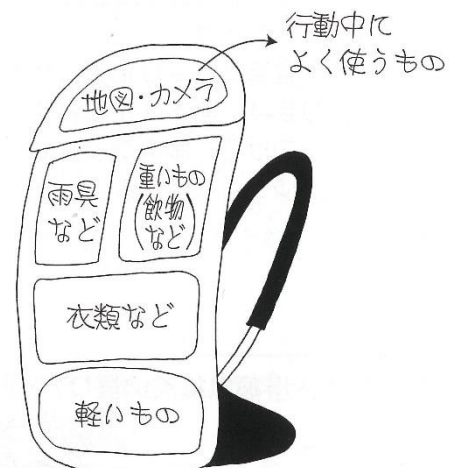 行動中に
よく使うもの
地図・カメラ
雨具
など
重いもの
(飲物)
(など)
衣類など
軽いもの